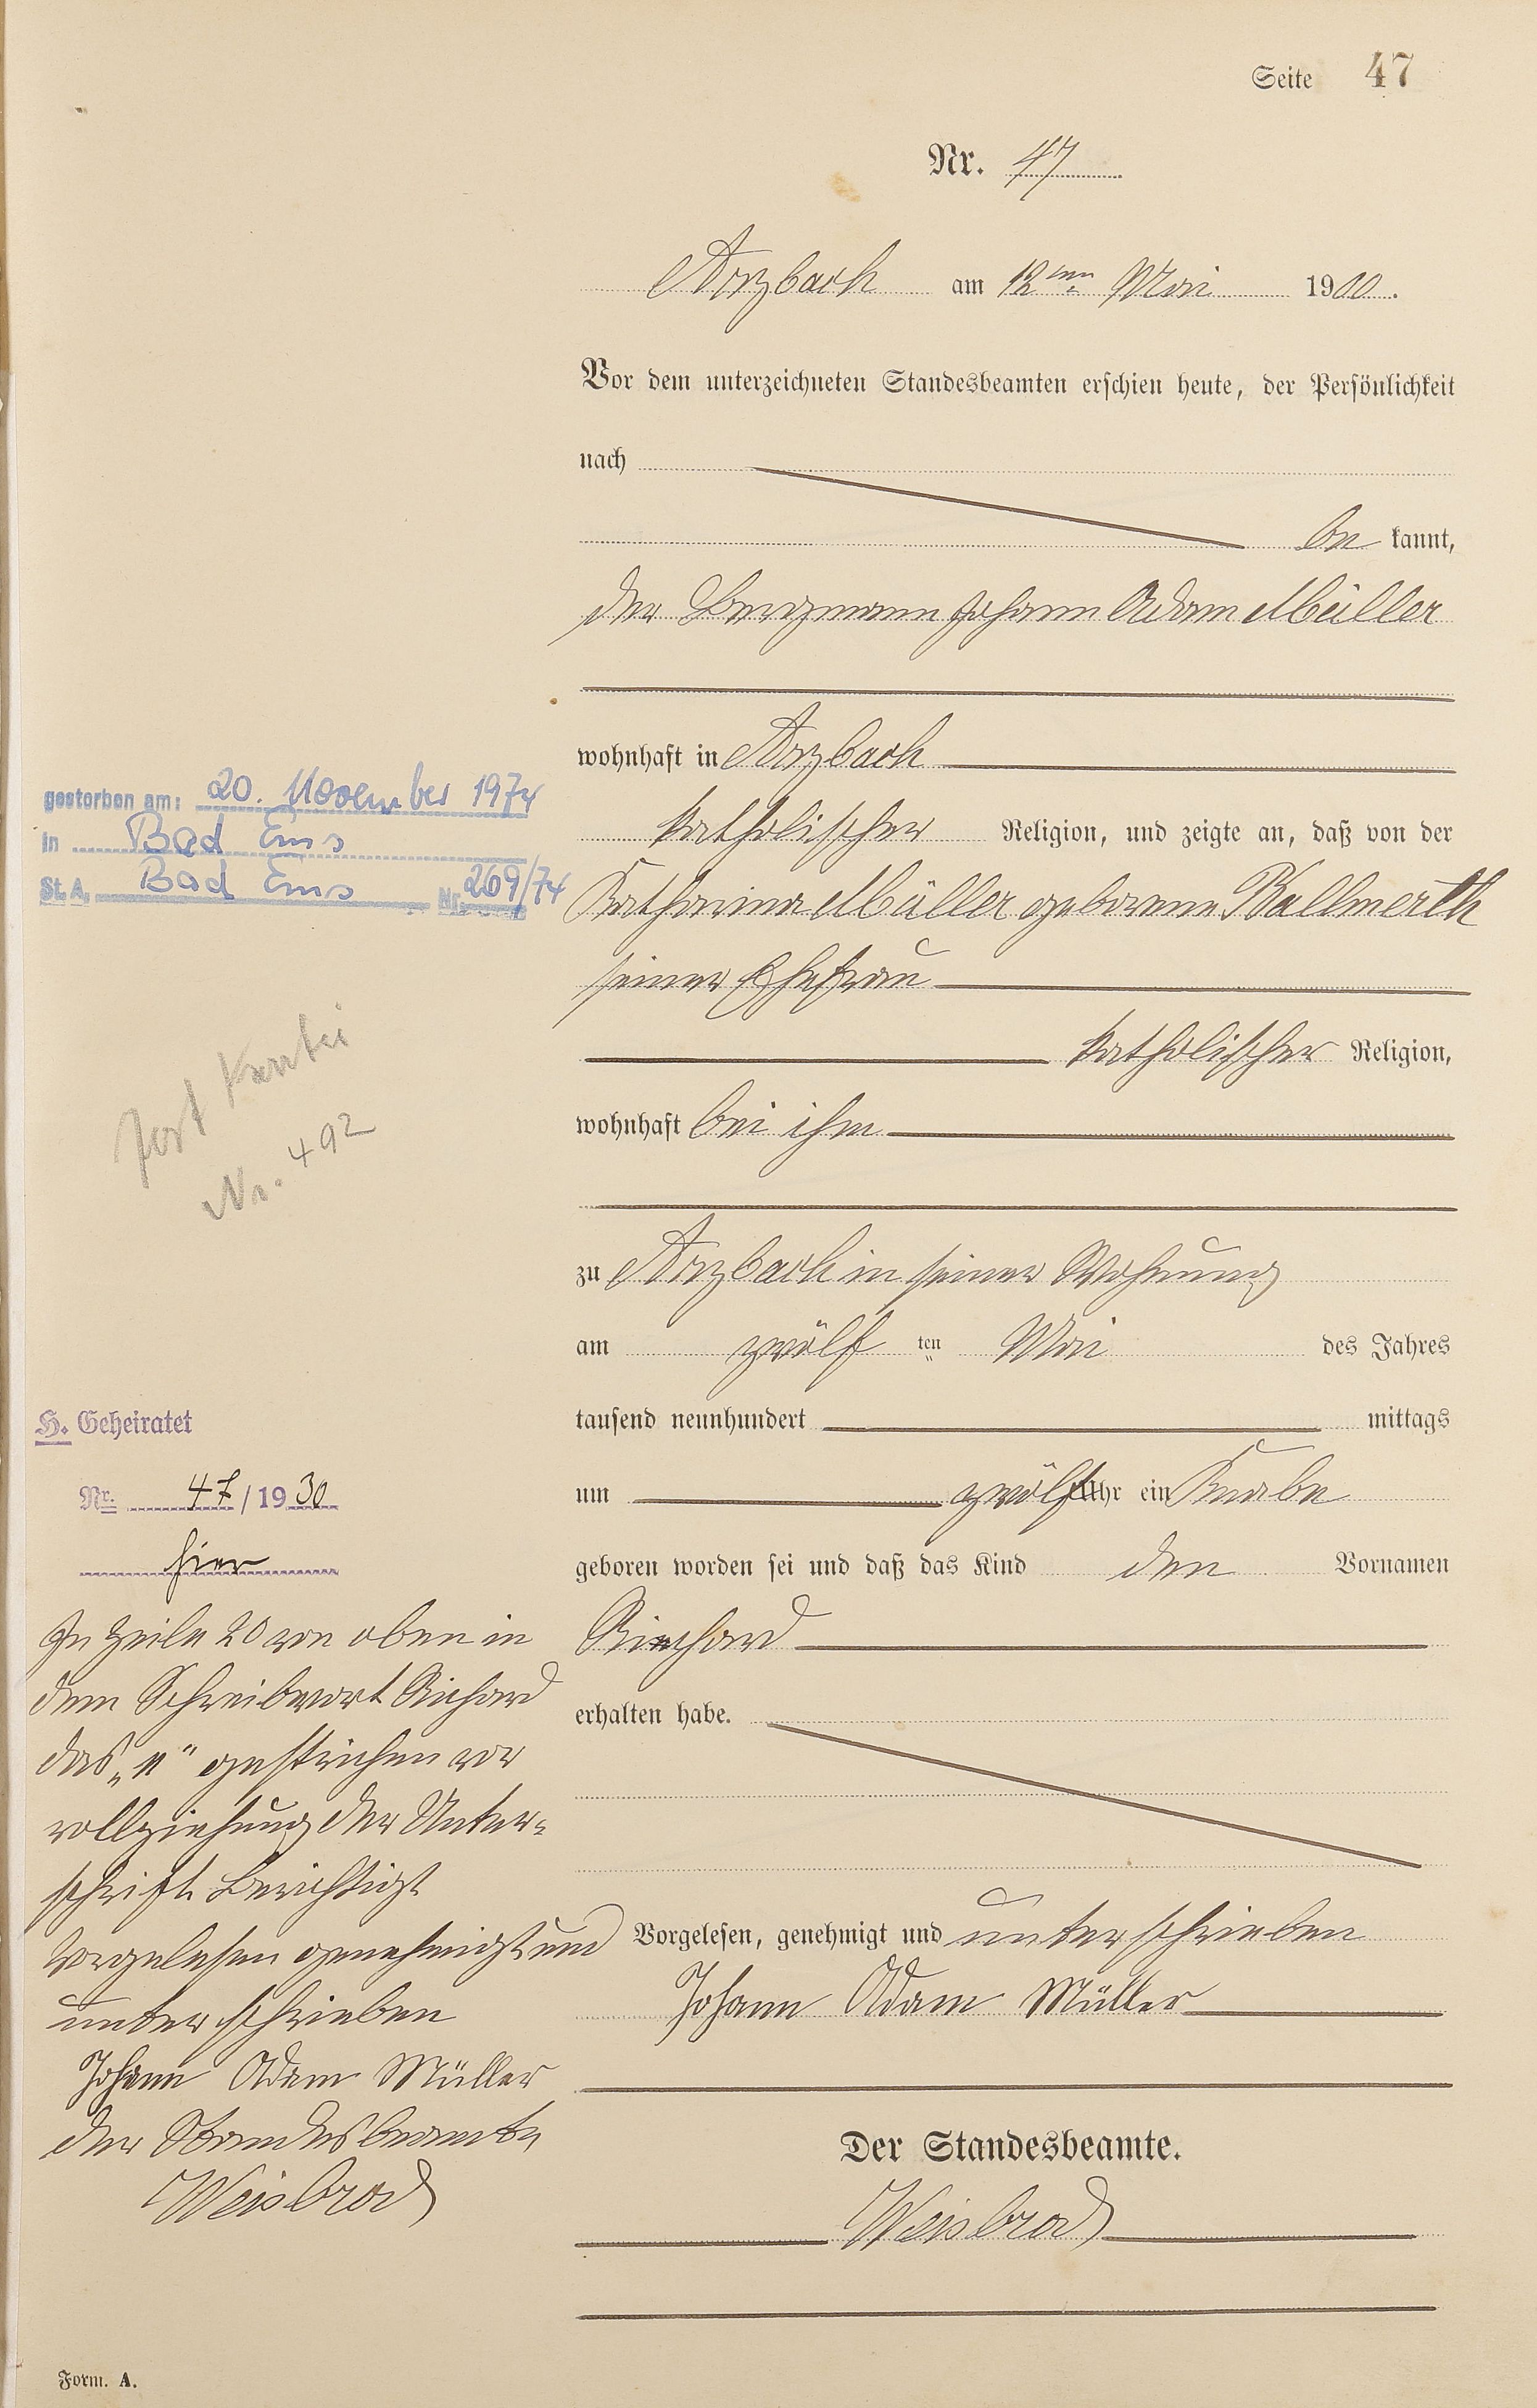 Seite 47
Nr. 47
Arzbach am 12ten Mai 1900.
Vor dem unterzeichneten Standesbeamten erschien heute, der Persönlichkeit
nach
be kannt,
der Bergmann Johann Adam Müller
wohnhaft in Arzbach
katholischer Religion, und zeigte an, daß von der
Katharina Müller geborene Kallmerth
seiner Ehefrau
katholischer Religion,
wohnhaft bei ihm
zu Arzbach in seiner Wohnung
am zwölf ten Mai des Jahres
tausend neunhundert mittags
um zwölf Uhr ein Knabe
geboren worden sei und daß das Kind den Vornamen
Rinchard
erhalten habe.
Vorgelesen, genehmigt und unterschrieben
Johann Adam Müller
Der Standesbeamte.
Weisbrod
gestorben am: 20. November 1974
in Bad Ems
St. A. Bad Ems Nr. 269/74
Kartei
Nr. 492
H. Geheiratet
Nr. 47/1930
hier
In Zeile 20 von oben in
dem Schreibwort Richard
das „n“ gestrichen vor
vollziehung der Unter-
schrift Berichtigt
Vorgelesen genehmigt und
unterschrieben
Johann Adam Müller
der Standesbeamte
Weisbrod
Form. A.